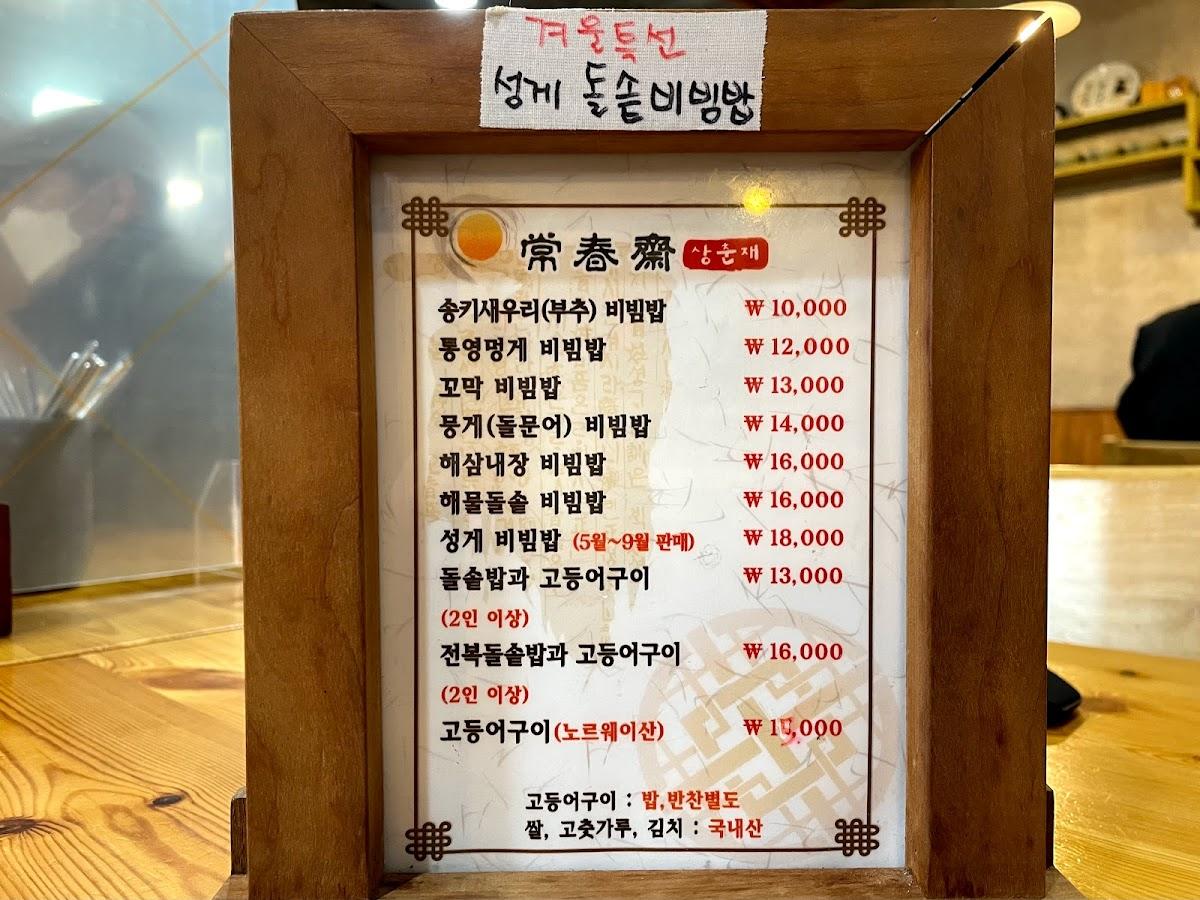 겨울특선
성게 돌솥비빔밥
常春齋 상춘재
송키새우리(부추) 비빔밥 ₩ 10,000
통영멍게 비빔밥 ₩ 12,000
꼬막 비빔밥 ₩ 13,000
뭉게(돌문어) 비빔밥 ₩ 14,000
해삼내장 비빔밥 ₩ 16,000
해물돌솥 비빔밥 ₩ 16,000
성게 비빔밥 (5월~9월 판매) ₩ 18,000
돌솥밥과 고등어구이 ₩ 13,000
(2인 이상)
전복돌솥밥과 고등어구이 ₩ 16,000
(2인 이상)
고등어구이(노르웨이산) ₩ 15,000
고등어구이 : 밥,반찬별도
쌀, 고춧가루, 김치 : 국내산